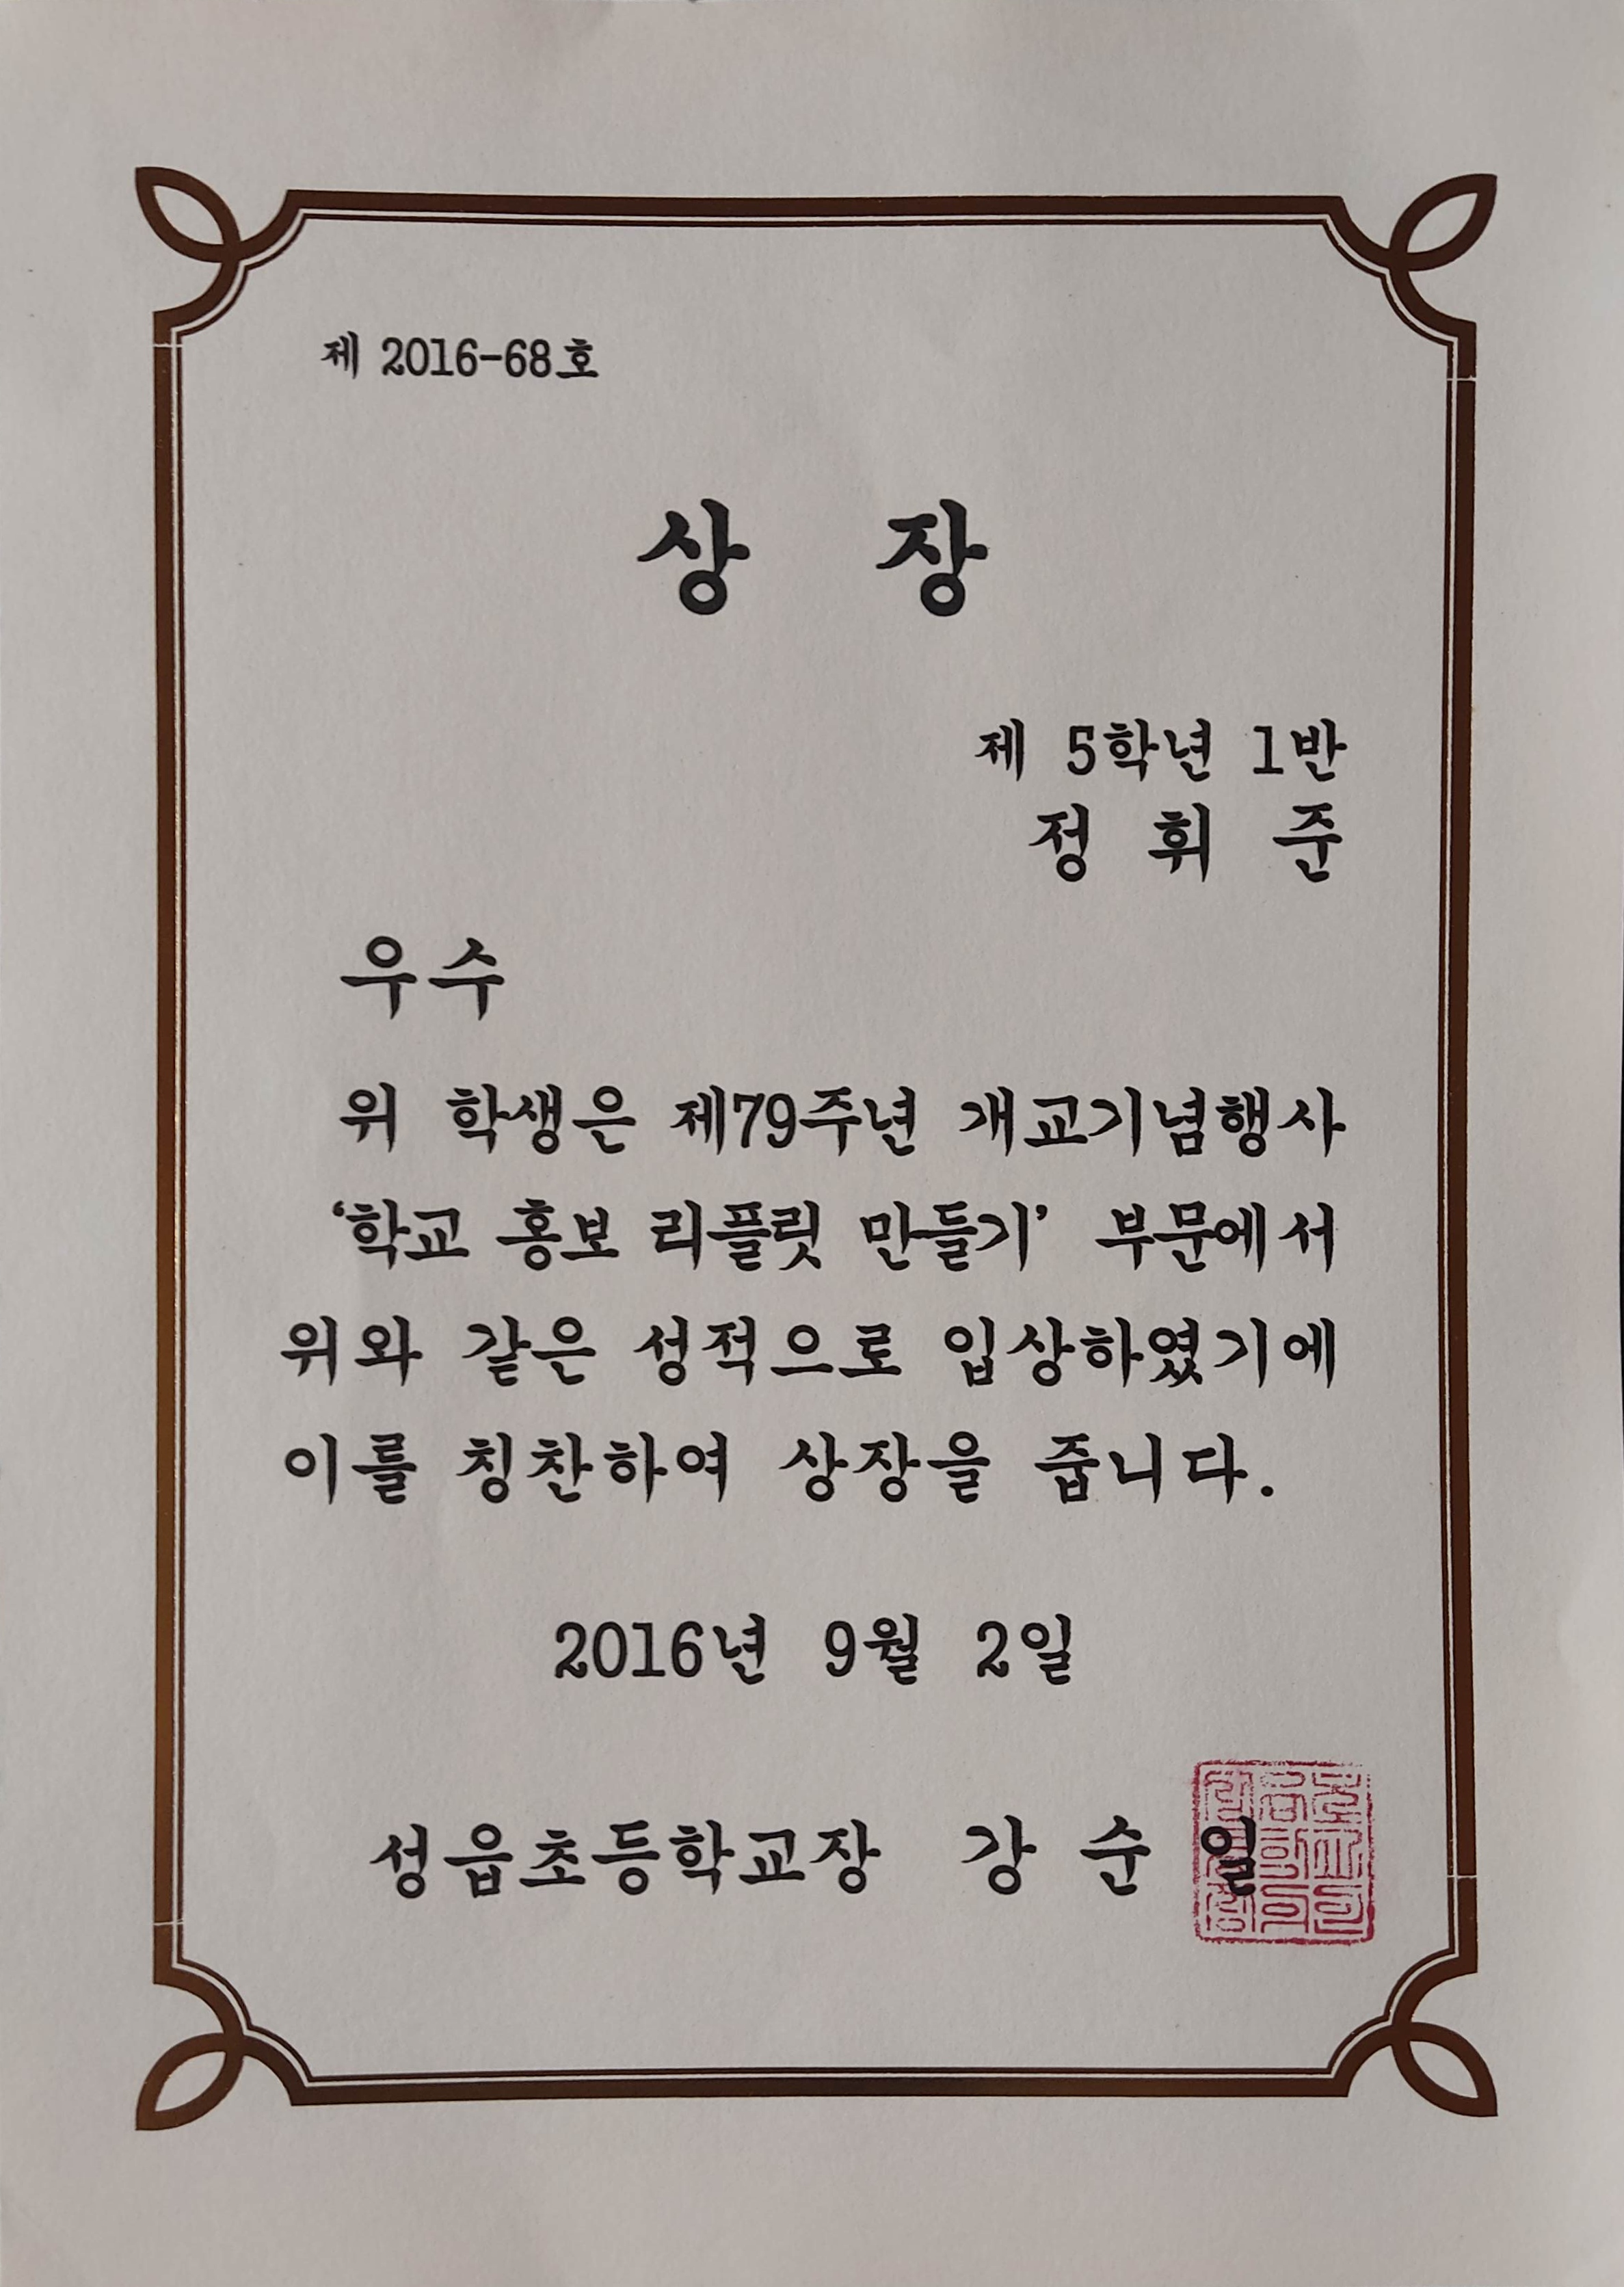 제 2016-68호
상 장
제 5학년 1반
정 휘 준
우수
위 학생은 제79주년 개교기념행사
‘학교 홍보 리플릿 만들기’ 부문에서
위와 같은 성적으로 입상하였기에
이를 칭찬하여 상장을 줍니다.
2016년 9월 2일
성읍초등학교장 강 순 일